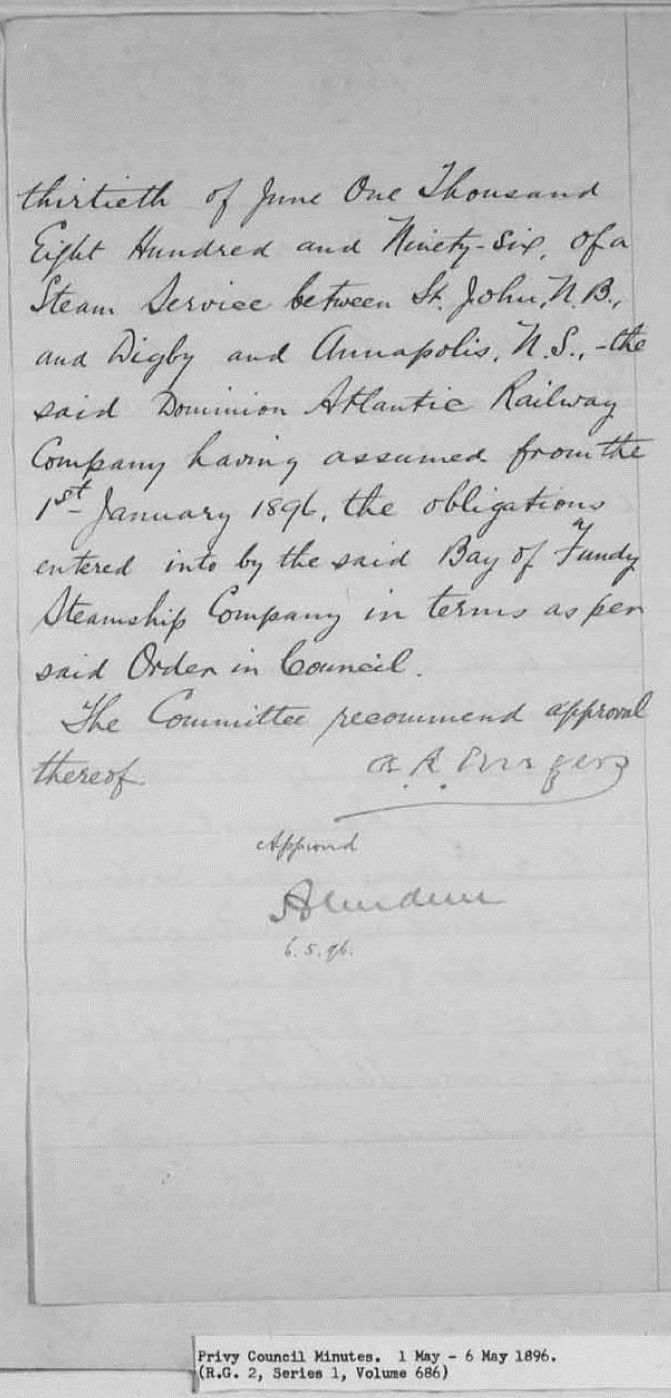 thirtieth of June One Thousand
Eight Hundred and Ninety-Six, of a
Steam Service between St. John, N.B.,
and Digby and Annapolis, N.S., - the
said Dominion Atlantic Railway
Company having assumed from the
1st January 1896, the obligations
entered into by the said Bay of Fundy
Steamship Company in terms as per
said Order in Council.
The Committee recommend approval
thereof.
Approved
Aberdeen
6.5.96.
Privy Council Minutes. 1 May - 6 May 1896.
(R.G. 2, Series 1, Volume 686)